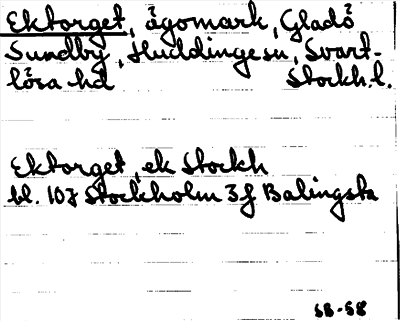 Ektorget, ägomark, Gladö
Sundby, Huddinge sn, Svart-
lösa hd Stockh.l.
Ektorget, ek Stockh
bl. 107 Stockholm 3f Balingsta
SB-58